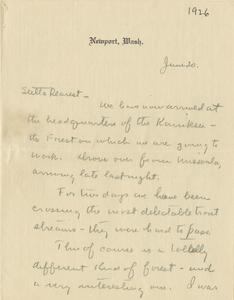 1926
Newport, Wash.
June 20.
Dearest -
We have now arrived at
the headquarters of the Kaniksu -
the Forest on which we are going to
work. Drove over from Missoula,
arriving late last night.
For two days we have been
crossing the most delectable trout
streams - they were hard to pass
This of course is a totally
different kind of forest - and
a very interesting one. I was